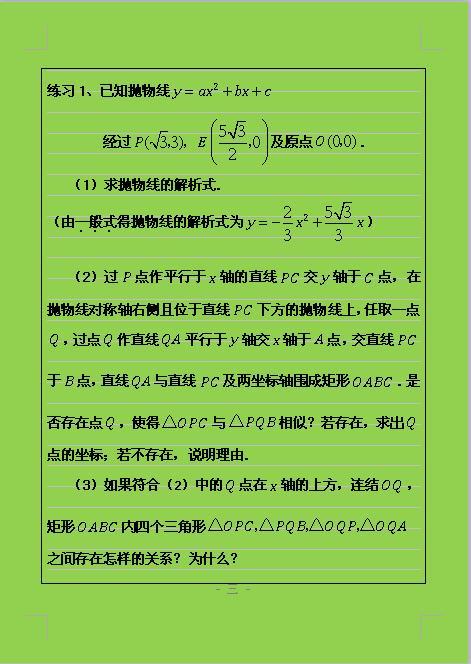 练习1、已知抛物线y = ax² + bx + c
经过P(√3,3), E(5√3/2,0)及原点O(0,0).
(1)求抛物线的解析式.
(由一般式得抛物线的解析式为y = -2/3x² + 5√3/3x)
(2)过P点作平行于x轴的直线PC交y轴于C点,在
抛物线对称轴右侧且位于直线PC下方的抛物线上,任取一点
Q,过点Q作直线QA平行于y轴交x轴于A点,交直线PC
于B点,直线QA与直线PC及两坐标轴围成矩形OABC.是
否存在点Q,使得△OPC与△PQB相似?若存在,求出Q
点的坐标;若不存在,说明理由.
(3)如果符合(2)中的Q点在x轴的上方,连结OQ,
矩形OABC内四个三角形△OPC,△PQB,△OQP,△OQA
之间存在怎样的关系?为什么?
- 三 -